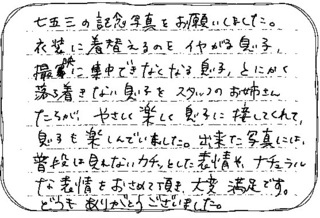 七五三の記念写真をお願いしました。
衣装に着替えるのをイヤがる息子、
撮影に集中できなくなる息子、とにかく
落ち着きない息子をスタッフのお姉さん
たちが、やさしく楽しく息子に接してくれて、
息子も楽しんでいました。出来た写真には、
普段は見れないカチッとした表情や、ナチュラル
な表情をおさめて頂き、大変満足です。
どうもありがとうございました。